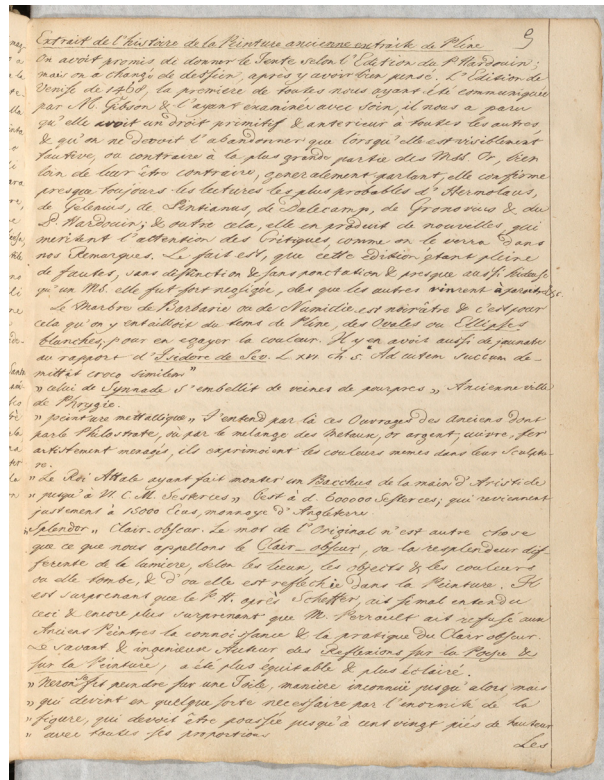 Extrait de l'histoire de la Peinture ancienne extraite de Pline
On avoit promis de donner le Texte selon l'Edition du P. Hardouin;
mais on a changé de dessein, après y avoir bien pensé. L'Edition de
Venise de 1468, la premiere de toutes nous ayant été communiquée
par M. Gibson & l'ayant examinée avec soin, il nous a paru
qu'elle avoit un droit primitif & anterieur à toutes les autres
& qu'on ne devoit l'abandonner que lorsqu'elle est visiblement
fautive, ou contraire à la plus grande partie des Mss. Or, bien
loin de leur être contraire, generalement parlant, elle confirme
presque toujours les lectures les plus probables d'Hermolaus,
de Gelenius, de Pintianus, de Dalecamp, de Gronovius & du
P. Hardouin; & outre cela, elle en produit de nouvelles, qui
meritent l'attention des Critiques, comme on le verra dans
nos Remarques. Le fait est, que cette édition étant pleine
de fautes, sans distinction & sans ponctation & presque aussi
qu'un Ms. elle fut fort negligée, des que les autres vinrent à paroitre
Le Marbre de Barbarie ou de Numidie est noirâtre & c'est pour
cela qu'on y entailloit du tems de Pline, des Ovales ou Ellipses
blanches, pour en egayer la couleur. Il y en avoit aussi de jaunatre
au rapport d'Isidore de Sev. L. XVI ch. 5. Ad cutem succum de-
mittit croco similem"
" celui de Synnade s'embellit de veines de pourpres " Ancienne ville
de Phrygie.
" peinture mettallique " J'entend par là ces Ouvrages des Anciens dont
parle Philostrate, où par le melange des Metaux, or argent, cuivre, fer
artistement menagés, ils exprimoient les couleurs memes dans leur Sculptu-
re.
" Le Roi Attale ayant fait monter un Bacchus de la main d'Aristide
" jusqu'à VI. C. M. Sesterces " C'est à d. 600000 Sesterces; qui reviennent
justement à 15000 Ecus, monnoye d'Angleterre
" Splendor " Clair-obscur. Le mot de l'Original n'est autre chose
que ce que nous appellons le Clair-obscur, ou la resplendeur dif-
ferente de la lumiere, selon les lieux, les objects & les couleurs
ou elle tombe, & d'ou elle est reflechie dans la Peinture. Il
est surprenant que le P. H. après Scheffer, ait si mal entendu
ceci & encore plus surprenant que M. Perrault ait refusé aux
Anciens Peintres la connoissance & la pratique du Clair obscur.
Le savant & ingenieux Auteur des Reflexions sur la Poesie &
sur la Peinture, a été plus equitable & plus éclairé.
" Neron fit peindre sur une Toile, maniere inconnüe jusqu'alors mais
" qui devint en quelque sorte necessaire par l'enormité de la
" figure, qui devoit être poussée jusqu'à cent vingt piés de hauteur
" avec toutes ses proportions
Les